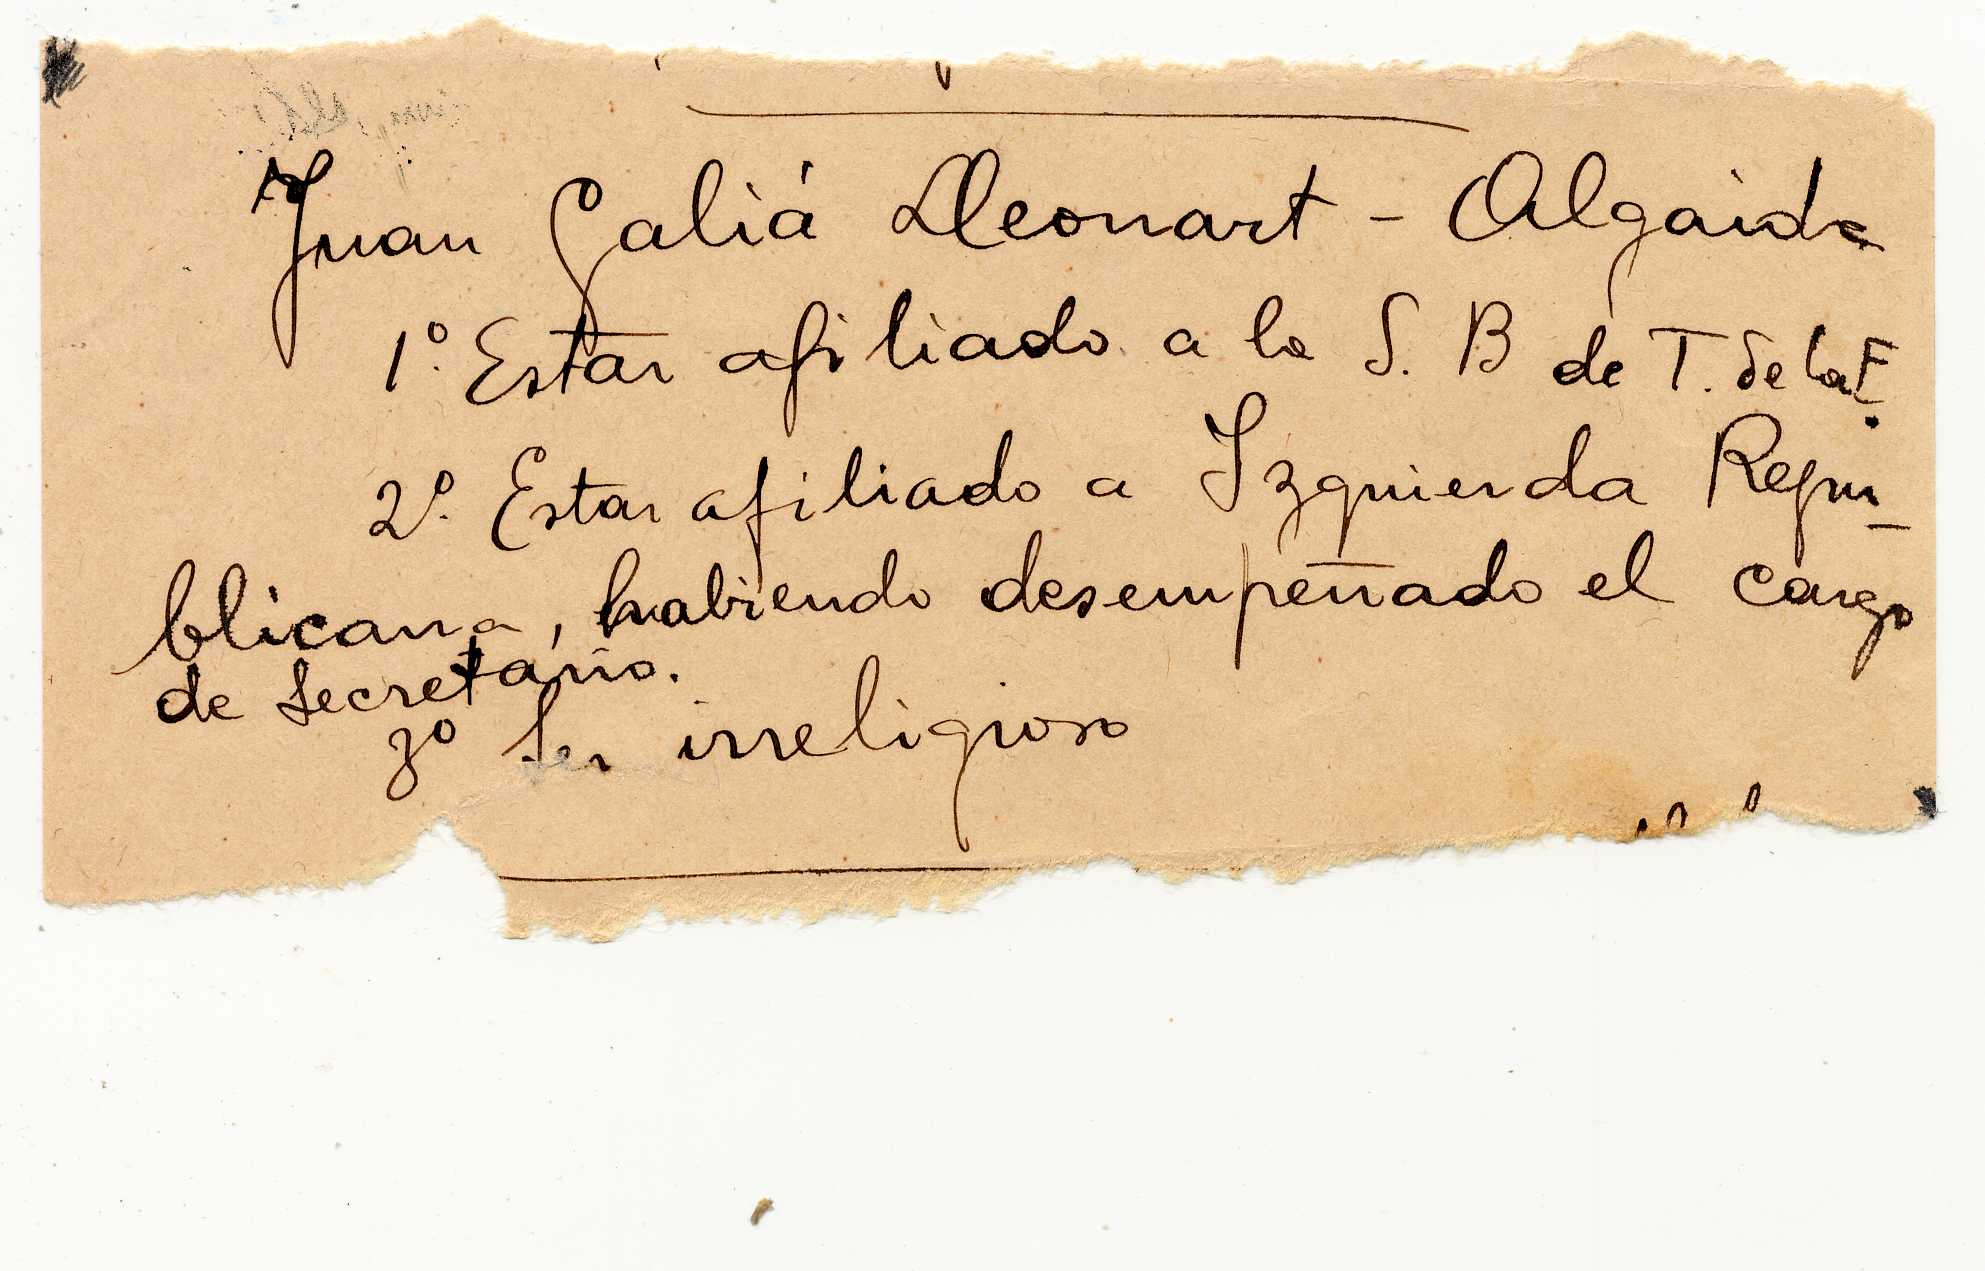 Juan Galiá Lleonart - Algaida
1º. Estar afiliado a la S. B de T. de la E.
2º. Estar afiliado a Izquierda Repu-
blicana, habiendo desempeñado el cargo
de Secretario.
3º Ser irreligioso